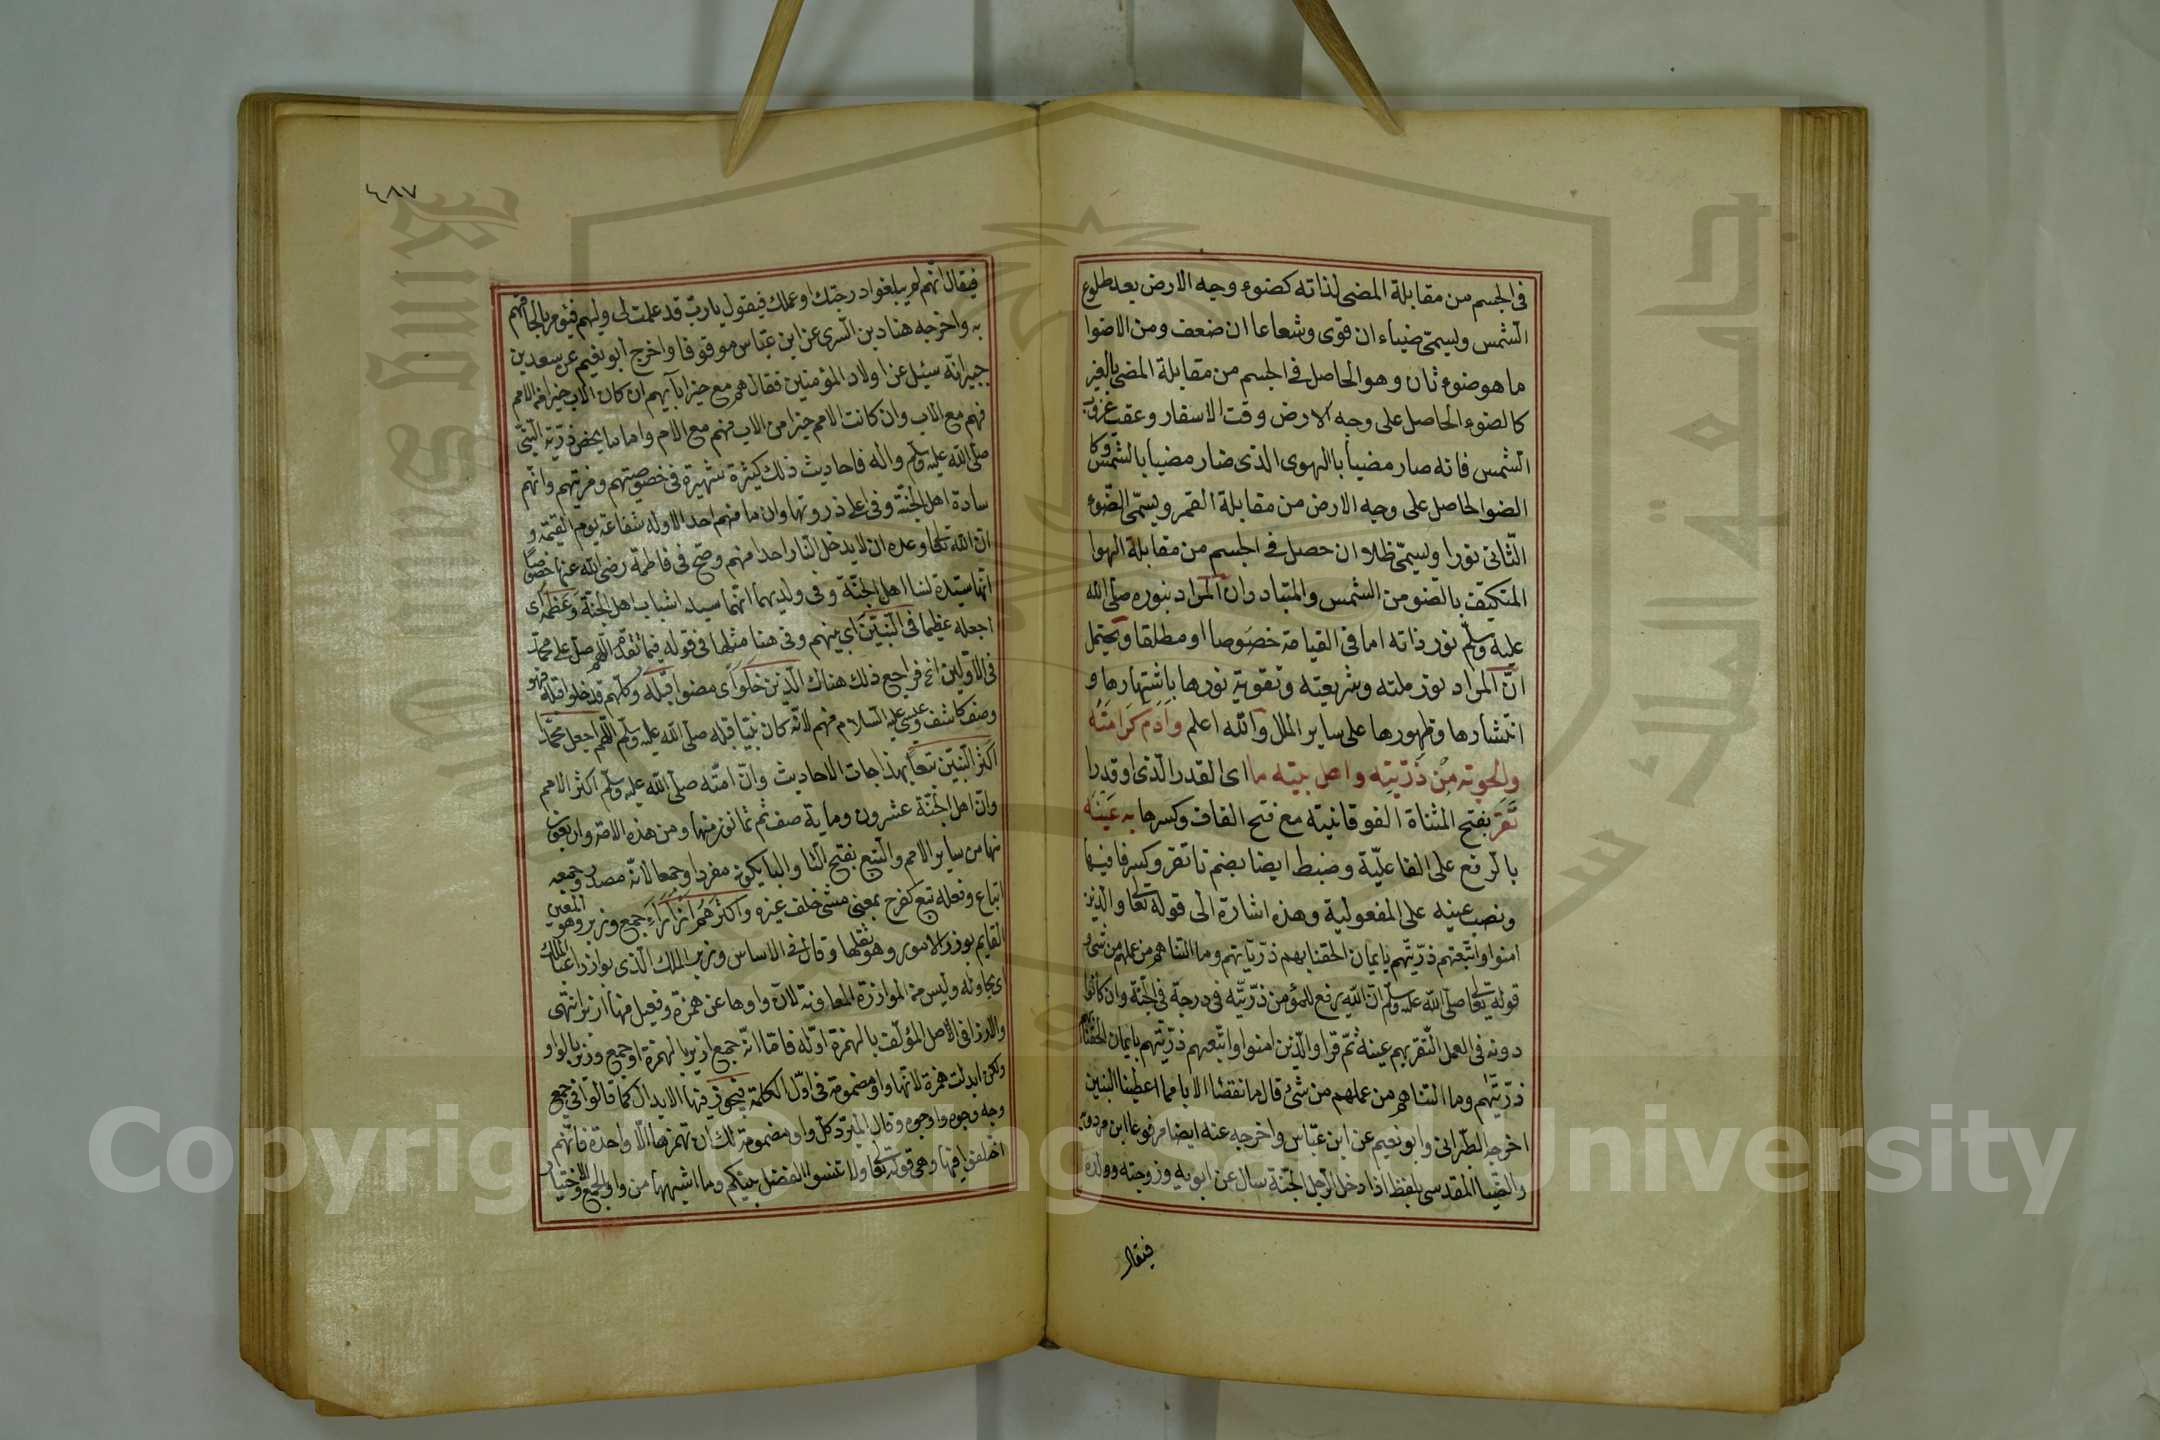 في الجسم من مقابلة المضى لذاته كضوء وجه الارض بعد طلوع
الشمس ويسمى ضياء ان قوى وشعاعا ان ضعف ومن الاضوا
ما هو ضوء ثان وهو الحاصل في الجسم من مقابلة المضى بالغير
كالضوء الحاصل على وجه الارض وقت الاسفار وعقب غروب
الشمس فانه صار مضيأ بالهوى الذى صار مضيا بالشمس وكا
الضوا لحاصل على وجه الارض من مقابلة القمر ويسمى الضوء
الثانى نورا ويسمى ظلا ان حصل في الجسم من مقابلة الهوا
المتكيف بالضو من الشمس والمتبادر ان المراد بنوره صلى الله
عليه وسلم نور ذاته اما في القيامة خصوصا او مطلقا ويحتمل
ان المراد نور ملته وشريعته وتقوية نورها باشتهارها و
انتشارها وظهورها على ساير الملل والله اعلم وادم كرامته
والحوته من ذريته واهل بيته ما اى القدر الذى او قدرا
تقر بفتح المثناة الفوقانية مع فتح القاف وكسرها به عينه
بالرفع على الفاعلية وضبط ايضا بضم تا تقر وكسر فا فيها
ونصب عينه على المفعولية وهذه اشارة الى قوله تعالى والذين
امنوا واتبعتهم ذريتهم بايمان الحقنا بهم ذرياتهم وما التناهم من عملهم من شئ و
قوله صلى الله عليه وسلم ان الله يرفع للمؤمن ذريته في درجة في الجنة وان كانوا
دونه في العمل لتقر بهم عينه ثم قرا والذين امنوا واتبعتهم ذريتهم بايمان الحقنا
ذريتهم وما التناهم من عملهم من شئ قال ما نقصنا الابا مما اعطينا البنين
اخرجه الطبرانى وابو نعيم عن ابن عباس واخرجه عنه ايضا مرفوعا ابن مردويه
والضيا المقدسى بلفظ اذا دخل الرجل الجنة سال عن ابويه وزوجته وولده
فيقال
٤٨٧
فيقال انهم لم يبلغوا درجتك او عملك فيقول يا رب قد علمت لى ولهم فيؤمر بالحاقهم
به واخرجه هناد بن السرى عن ابن عباس موقوفا واخرج ابو نعيم عن سعيد بن
جبير انه سئيل عن اولاد المؤمنين فقال هم مع خير ابآيهم ان كان الاب خيرا من الام
فهم مع الاب وان كانت الام خيرا من الاب فهم مع الام واما ما يخص ذرية النبي
صلى الله عليه وسلم واله فاحاديث ذلك كثيرة شهيرة في خصوصيتهم ومزيتهم وانهم
سادة اهل الجنة وفي اعلى ذروتها وان ما منهم احد الا وله شفاعة يوم القيمة و
ان الله تعالى وعده ان لا يدخل النار احدا منهم وصح في فاطمة رضى الله عنها خصوصا
انها سيدة نسا اهل الجنة وفي ولديهما انهما سيدا شباب اهل الجنة وعظمه اى
اجعله عظيما في النبيين اى بينهم وفي هنا مثلها في قوله فيما تقدم اللهم صل على محمد
في الاولين الخ فراجع ذلك هناك الذين خلوا اى مضوا قبله وكلهم قد خلوا قبله فهو
وصف كاشف وعيسى عليه السلام منهم لانه كان نبيا قبله صلى الله عليه وسلم اللهم اجعل محمدا
اكثر النبيين تبعا بهذا جات الاحاديث وان امته صلى الله عليه وسلم اكثر الامم
وان اهل الجنة عشرون وماية صف ثم ثمانون منها ومن هذه الامة واربعون
نها من ساير الامم والتبع بفتح التا والبا يكون مفردا وجمعا لانه مصدر وجمعه
اتباع وفعله تبع كفرح بمعنى مشى خلف غيره واكثرهم ازراء جمع وزير وهو المعين
القايم بوزر الامور وهو ثقلها وقال في الاساس وزير الملك الذى يوازر اعباء الملك
اى يحاوله وليس من الموازرة المعاونة لان واوها عن همزة وفعيل منها ازير انتهى
والازرا في الاصل المؤلف بالهمزة اوله فاما انه جمع ازير بالهمزة او جمع وزير بالواو
ولكن ابدلت همزة لانها واو مضمومة في اول الكلمة فيجوز فيها الابدال كما قالوا في جمع
وجه وجوه واوجوه وقال المبرد كل واو مضمومة لك ان تهمزها الا واحدة فانهم
اختلفوا فيها وهى قوله تعالى ولا تنسوا الفضل بينكم وما اشبهها من واو الجمع والاختيار
Copyright © King Saud University